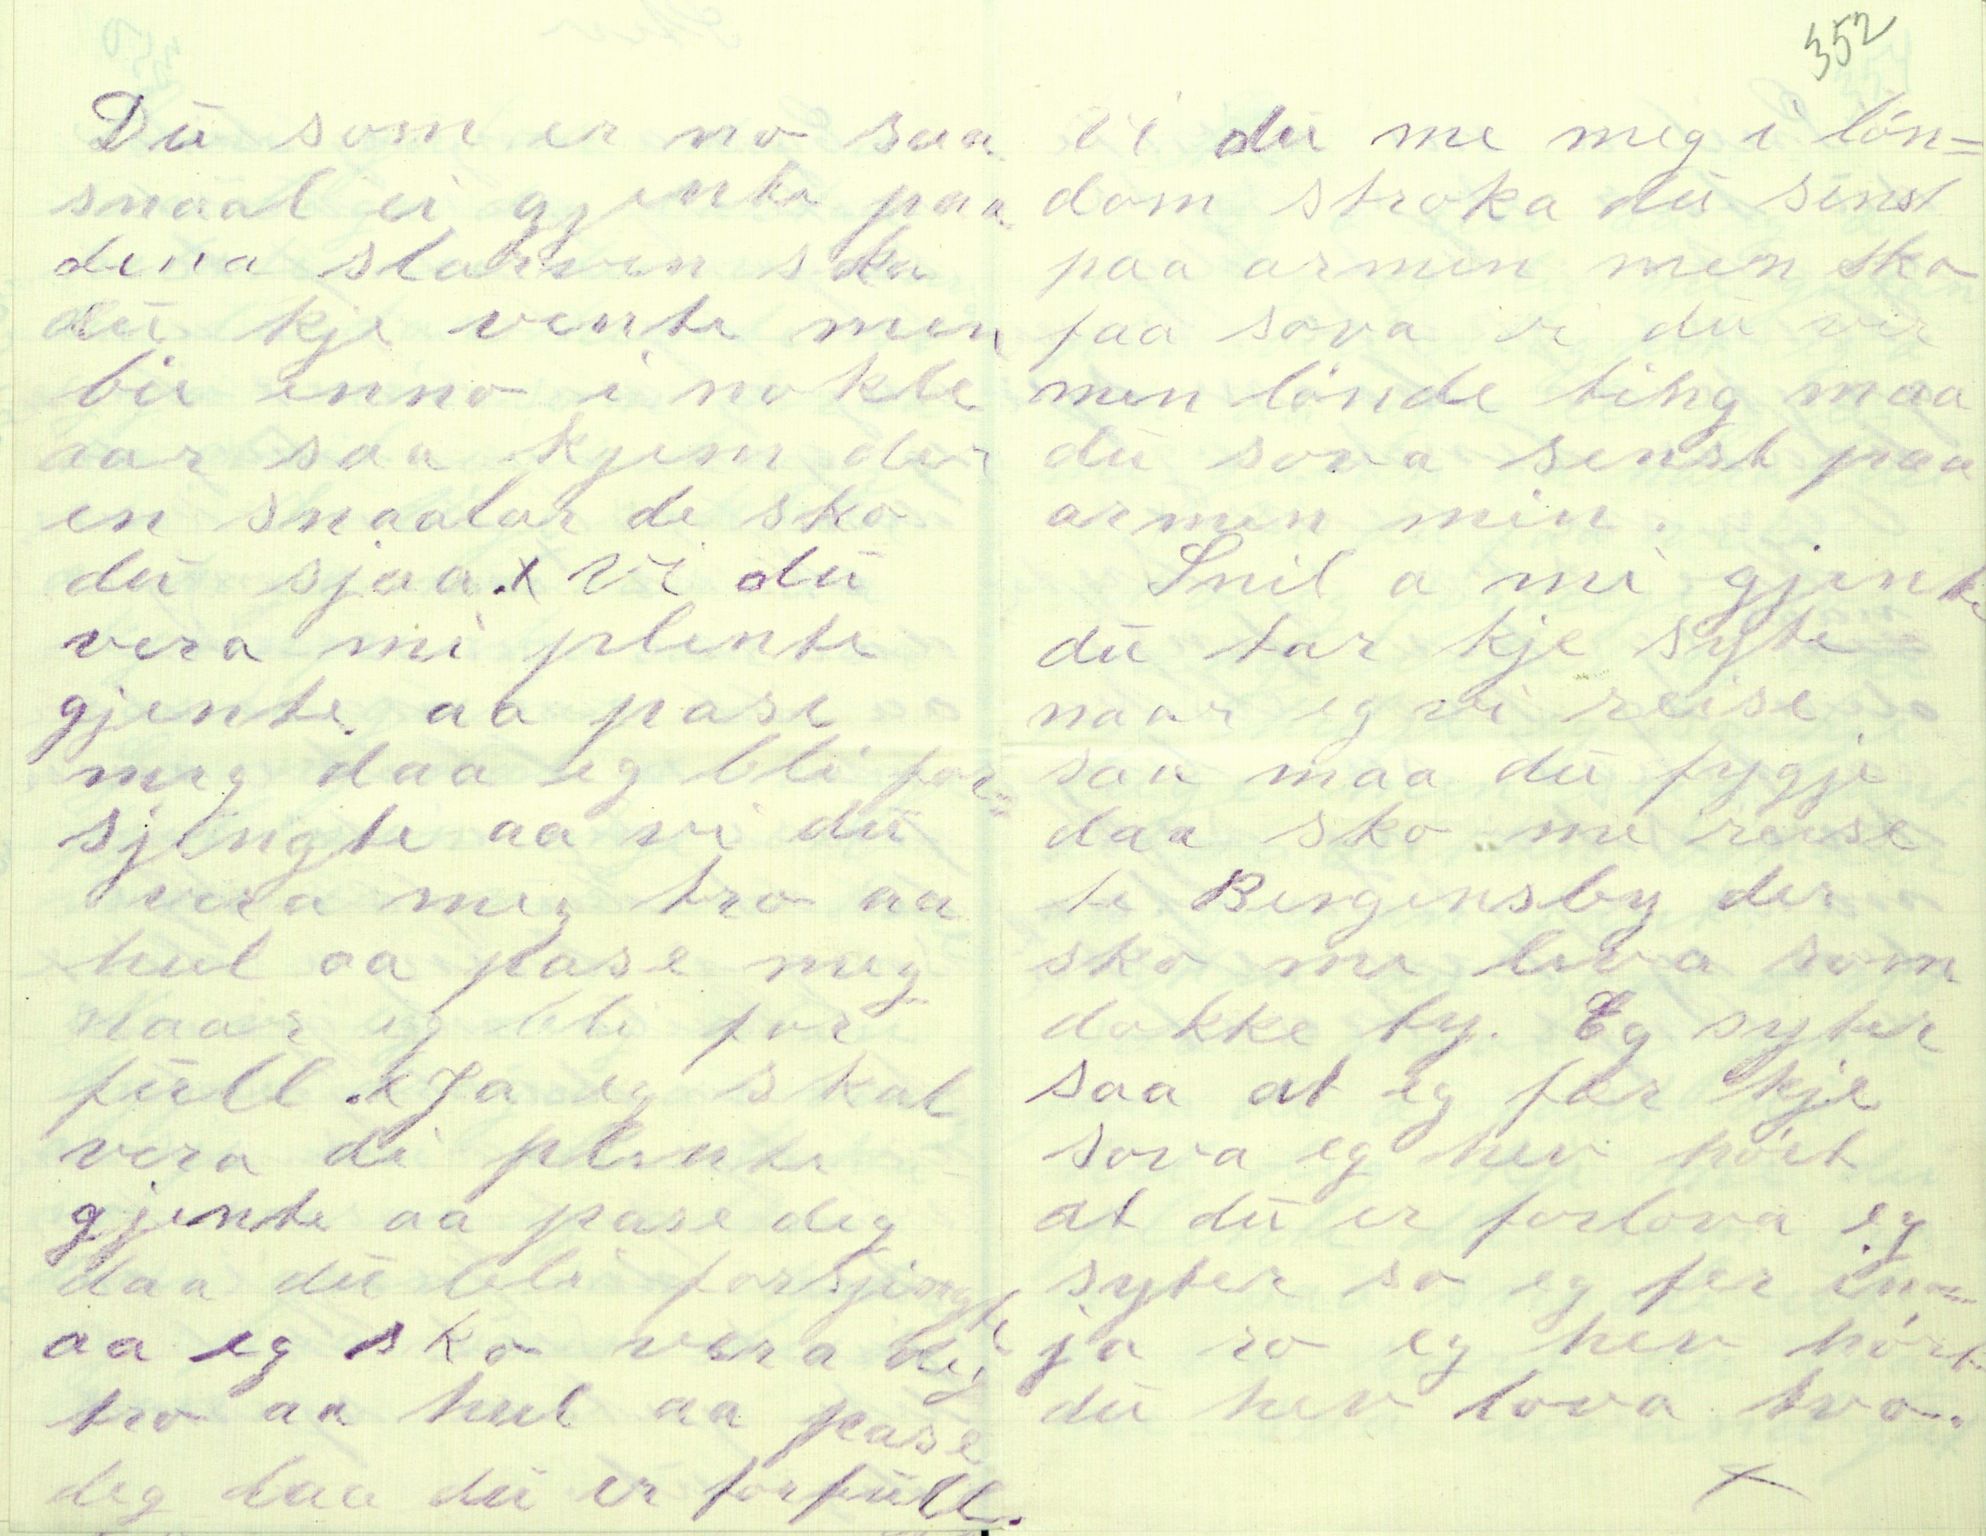 Dü som er no saa
snaal ei gjenta paa
dena slarven ska
dü kje vente men
bie enno i nokle
aar saa kjem der
en snaalar de sko
dü sjaa. x Vi dü
vera mi plente
gjente aa pase
meg daa eg bli for=
sjingte aa vi dü
vera meg tro aa
hul aa pase meg
naar eg bli for
füll. x Ja eg skal
vera di plente
gjente aa pase deg
daa dü bli forsjingte
aa eg sko vera deg
tro aa hul aa pase
deg daa dü er forfüll.
352
Vi dü me meg i lön=
dom stroka dü senst
paa armen men sko
faa sova vi dü ver
men lönde ting maa
dü sova senst paa
armen min.
Snil a mi gjente
dü tar kje syte
naar eg vi reise
saa maa dü fygje
daa sko me reise
te Bergensby der
sko me leva som
dokke ty. Eg syter
saa at eg fær kje
sova eg hev hört
at dü er forlova eg
syter so eg fer in=
ja ro eg hev hört
dü hev lova tvo.
x